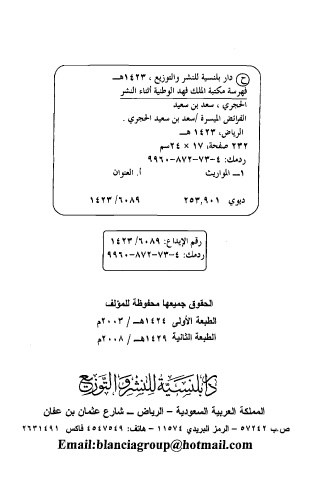 ح دار بلنسية للنشر والتوزيع ، ١٤٢٣هـ
فهرسة مكتبة الملك فهد الوطنية أثناء النشر
الحجري ، سعد بن سعيد
الفرائض الميسرة / سعد بن سعيد الحجري .
الرياض، ١٤٢٣ هـ
٢٣٢ صفحة، ١٧ × ٢٤سم
ردمك: ٤-٧٣-٨٧٢-٩٩٦٠
١ـ المواريث أ. العنوان
ديوي ٢٥٣,٩٠١ ١٤٢٣/٦٠٨٩
رقم الإيداع: ١٤٢٣/٦٠٨٩
ردمك: ٤-٧٣-٨٧٢-٩٩٦٠
الحقوق جميعها محفوظة للمؤلف
الطبعة الأولى ١٤٢٤هـ / ٢٠٠٣م
الطبعة الثانية ١٤٢٩هـ / ٢٠٠٨م
دار بلنسية للنشر والتوزيع
المملكة العربية السعودية - الرياض - شارع عثمان بن عفان
ص.ب ٥٧٢٤٢ - الرمز البريدي ١١٥٧٤ - هاتف: ٤٥٤٧٥٤٩ فاكس ٢٢٣١٤٩١
Email:blanciagroup@hotmail.com